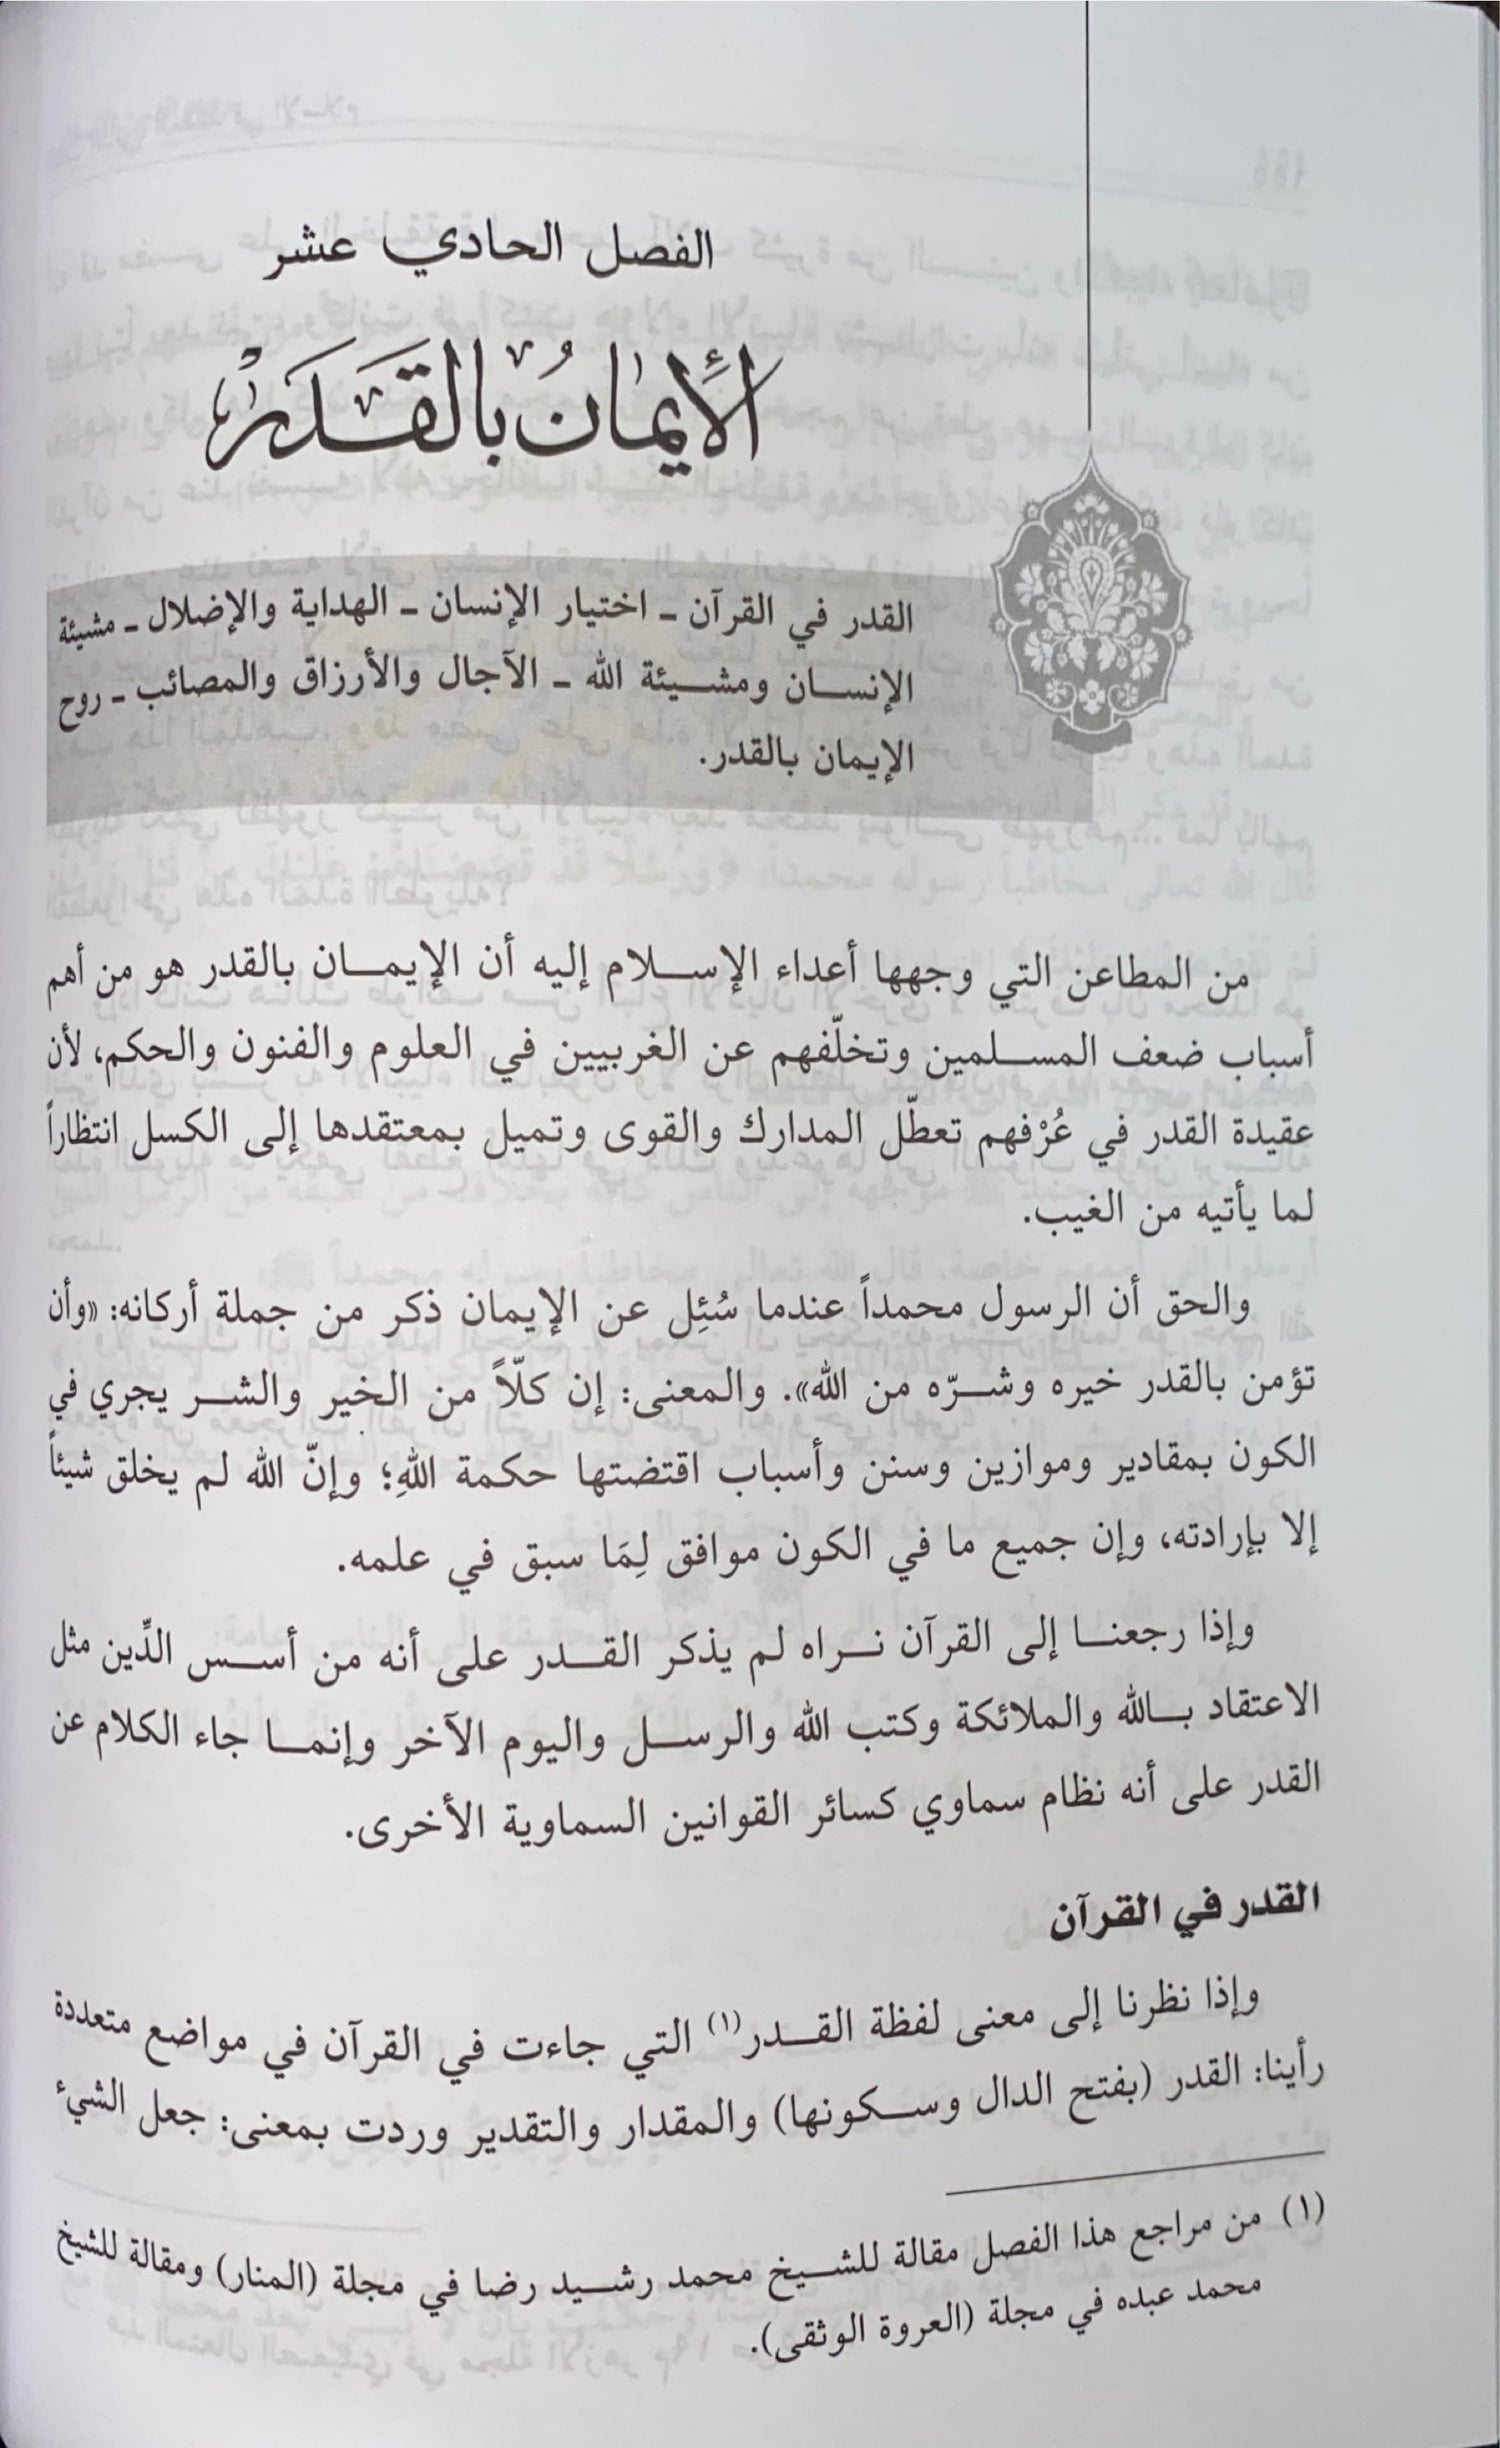 الفصل الحادي عشر
الإيمانُ بالقَدَرْ
القدر في القرآن ـ اختيار الإنسان ـ الهداية والإضلال ـ مشيئة
الإنسان ومشيئة الله ـ الآجال والأرزاق والمصائب ـ روح
الإيمان بالقدر.
من المطاعن التي وجهها أعداء الإسلام إليه أن الإيمان بالقدر هو من أهم
أسباب ضعف المسلمين وتخلّفهم عن الغربيين في العلوم والفنون والحكم، لأن
عقيدة القدر في عُرْفهم تعطّل المدارك والقوى وتميل بمعتقدها إلى الكسل انتظاراً
لما يأتيه من الغيب.
والحق أن الرسول محمداً عندما سُئِل عن الإيمان ذكر من جملة أركانه: «وأن
تؤمن بالقدر خيره وشرّه من الله». والمعنى: إن كلّاً من الخير والشر يجري في
الكون بمقادير وموازين وسنن وأسباب اقتضتها حكمة اللهِ؛ وإنّ الله لم يخلق شيئاً
إلا بإرادته، وإن جميع ما في الكون موافق لِمَا سبق في علمه.
وإذا رجعنا إلى القرآن نراه لم يذكر القدر على أنه من أسس الدِّين مثل
الاعتقاد بالله والملائكة وكتب الله والرسل واليوم الآخر وإنما جاء الكلام عن
القدر على أنه نظام سماوي كسائر القوانين السماوية الأخرى.
القدر في القرآن
وإذا نظرنا إلى معنى لفظة القدر(١) التي جاءت في القرآن في مواضع متعددة
رأينا: القدر (بفتح الدال وسكونها) والمقدار والتقدير وردت بمعنى: جعل الشيء
(١) من مراجع هذا الفصل مقالة للشيخ محمد رشيد رضا في مجلة (المنار) ومقالة للشيخ
محمد عبده في مجلة (العروة الوثقى).